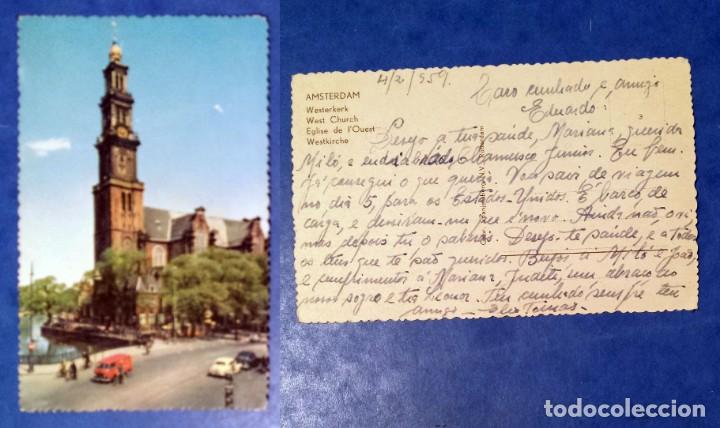 AMSTERDAM
Westerkerk
West Church
Eglise de l'Ouest
Westkirche
4/2/959.
Caro cunhado e amigo
Eduardo:
Desejo a tua saúde, Mariana, querida
Miló, e Francisco Junior. Eu bem.
Já consegui o que queria. Vou sair de viagem
no dia 5, para os Estados-Unidos. É barco de
carga, e é novo. Ainda não o vi
mas depois tu o saberás. Desejo-te saúde, e a todos
os teus que te são queridos. Beijos à Miló e João,
e cumprimentos à Mariana, Judite, um abraço ao
nosso sogro e tia Leonor. Teu cunhado sempre teu
amigo
todocoleccion